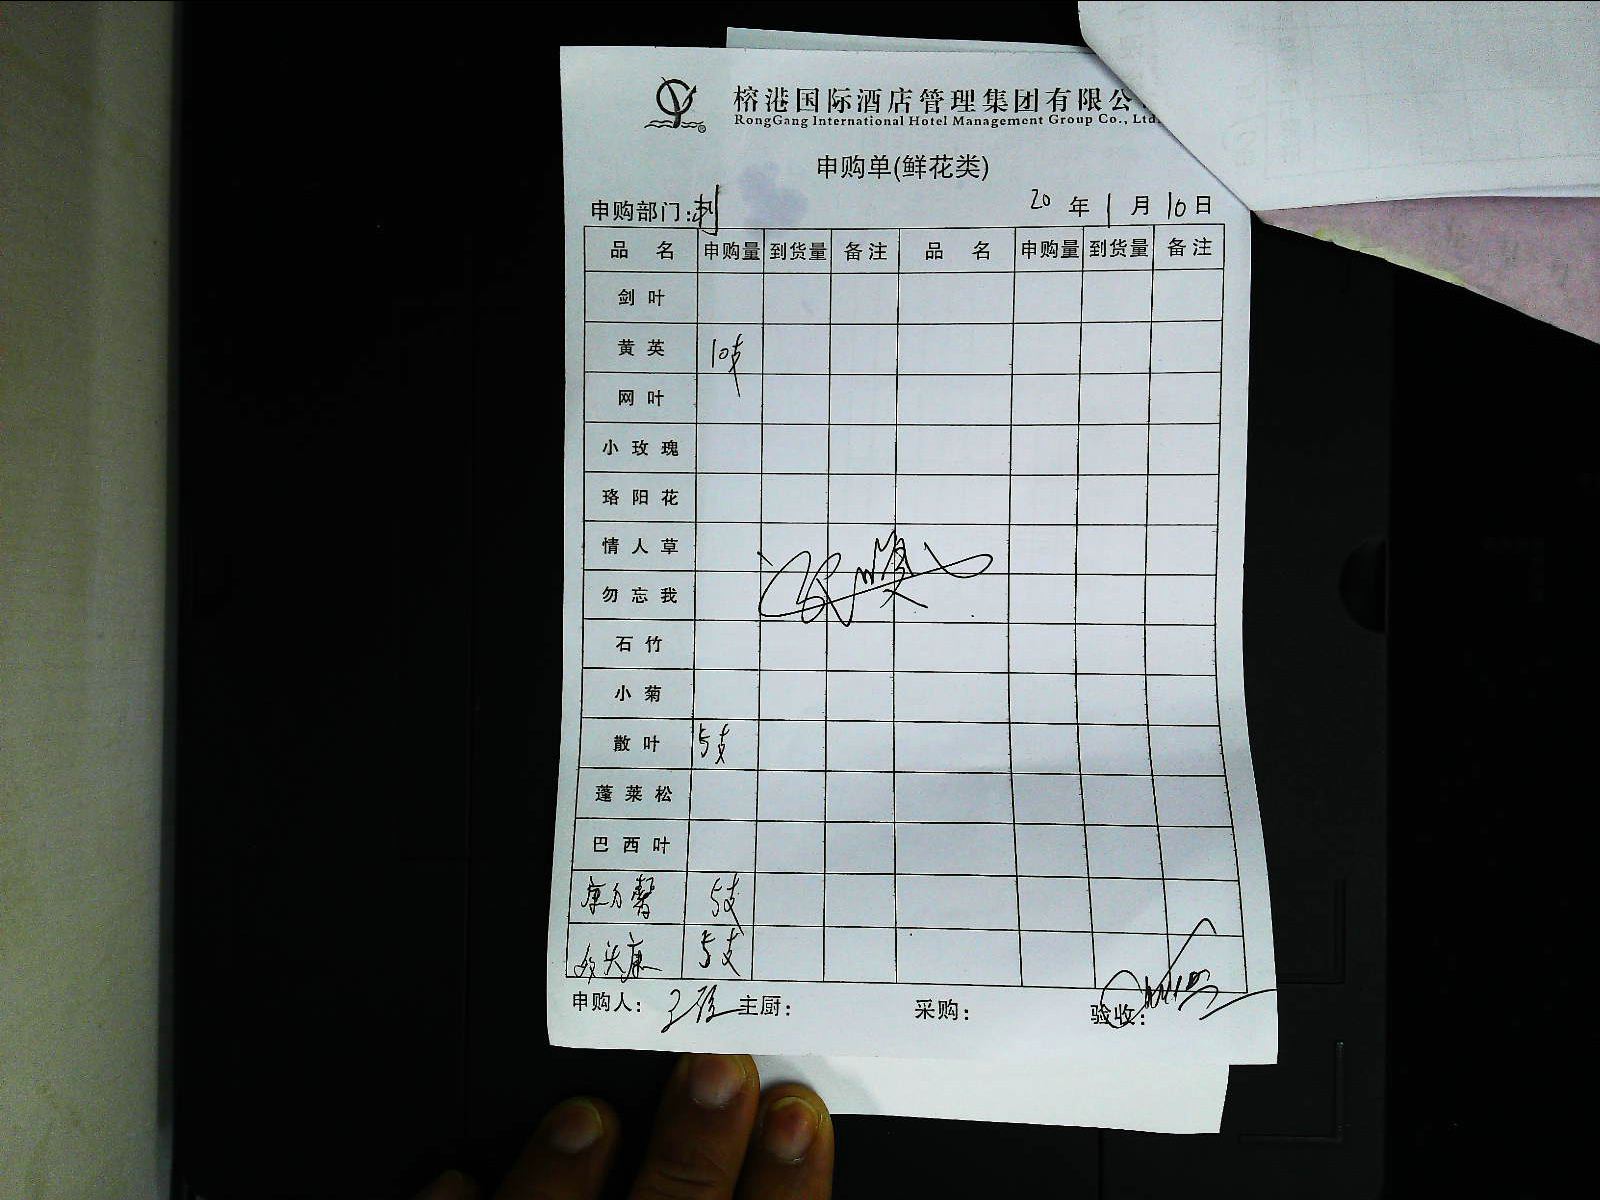 榕港国际酒店管理集团有限公
RongGang International Hotel Management Group Co., Ltd.
申购单(鲜花类)
申购部门: 20 年 1 月 10 日
品 名 申购量 到货量 备注 品 名 申购量 到货量 备注
剑叶
黄英 10支
网叶
小玫瑰
珞阳花
情人草
勿忘我
石竹
小菊
散叶 5支
蓬莱松
巴西叶
康乃馨 5支
5支
申购人: 主厨: 采购: 验收: